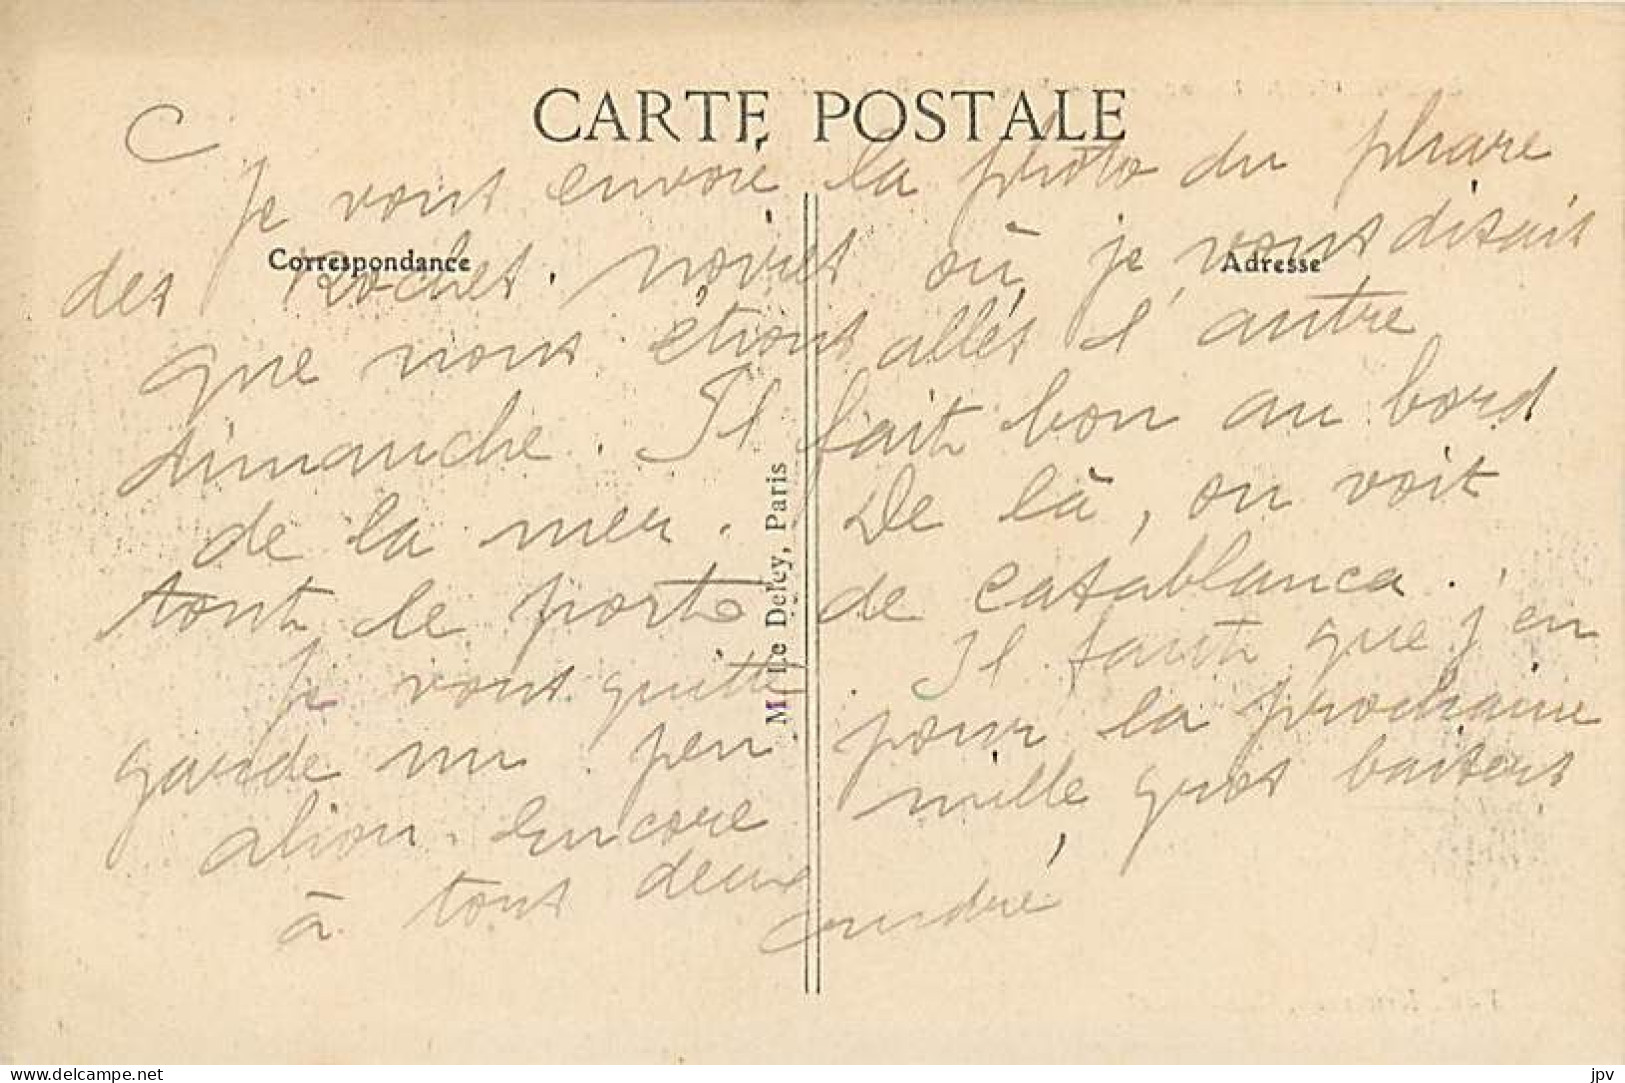 CARTE POSTALE
C
Je vous envoie la photo du phare
Correspondance
Adresse
des roches noires où je vous disais
que nous étions allés l'autre
dimanche. Il fait bon au bord
de la mer. De là, on voit
tout le porte de Casablanca.
Je vous quitte Il faut que j'en
garde un peu pour la prochaine
encore mille gros baisers
à tous deux
André
M. Le Deley, Paris
www.delcampe.net
jpv